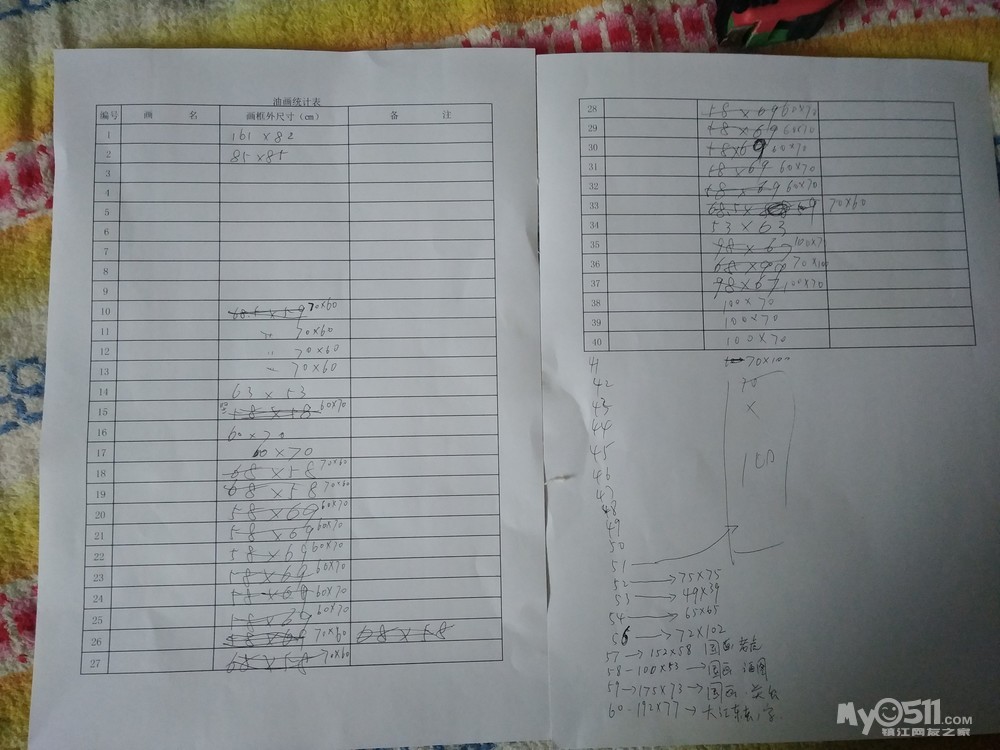 油画统计表
编号 画 名 画框外尺寸(cm) 备 注
1 161 x 82
2 85 x 85
3
4
5
6
7
8
9
10 68.5 x 59 70x60
11 〃 70x60
12 〃 70x60
13 〃 70x60
14 63 x 53
15 58 x 58 60x70
16 60 x 70
17 60 x 70
18 68 x 58 70x60
19 68 x 58 70x60
20 58 x 69 60x70
21 58 x 69 60x70
22 58 x 69 60x70
23 58 x 69 60x70
24 58 x 69 60x70
25 58 x 69 60x70
26 70x60 68 x 58
27 68 x 58 70x60
28 58 x 69 60x70
29 58 x 69 60x70
30 58x69 60x70
31 58 x 69 60x70
32 58 x 69 60x70
33 68.5 x 59 70x60
34 53 x 63
35 98 x 69 100x7
36 68 x 99 70x100
37 98 x 67 100x70
38 100 x 70
39 100 x 70
40 100 x 70
41 70x100
42 70
43 x
44
45
46 100
47
48
49
50
51
52 → 75x75
53 → 49x39
54 → 65x65
56 → 72x102
57 → 152x58 国画
58 - 100x53 → 国画
59 → 175x73 → 国画
60 - 192x77 → 大江东去 字
My0511.com
镇江网友之家